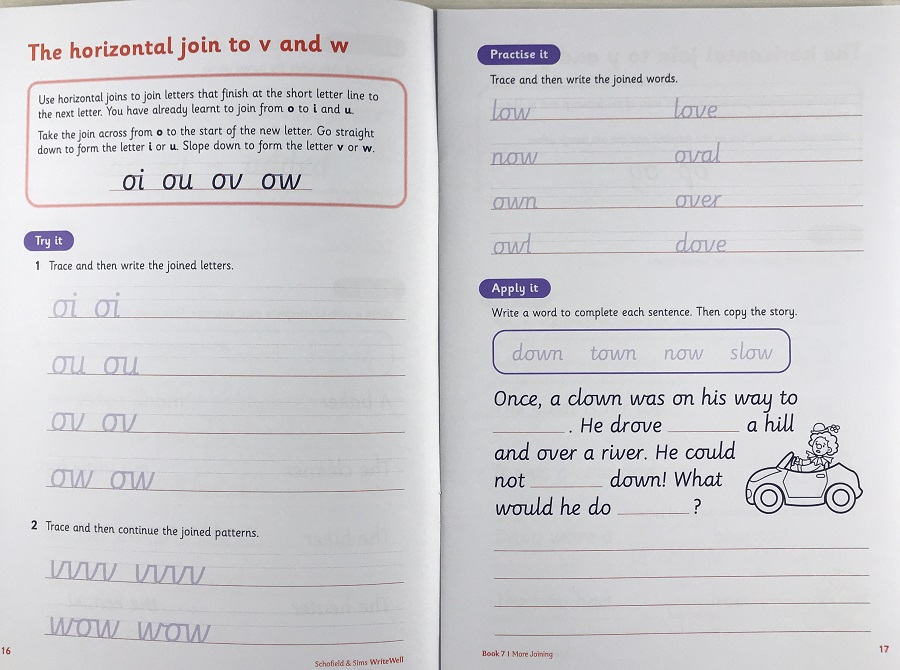 The horizontal join to v and w
Use horizontal joins to join letters that finish at the short letter line to
the next letter. You have already learnt to join from o to i and u.
Take the join across from o to the start of the new letter. Go straight
down to form the letter i or u. Slope down to form the letter v or w.
oi ou ov ow
Try it
1 Trace and then write the joined letters.
oi oi
ou ou
ov ov
ow ow
2 Trace and then continue the joined patterns.
vvvv vvvv
wow wow
16
Schofield & Sims WriteWell
Practise it
Trace and then write the joined words.
low love
now oval
own over
owl dove
Apply it
Write a word to complete each sentence. Then copy the story.
down town now slow
Once, a clown was on his way to
________ . He drove ________ a hill
and over a river. He could
not ________ down! What
would he do ________ ?
Book 7 | More Joining
17